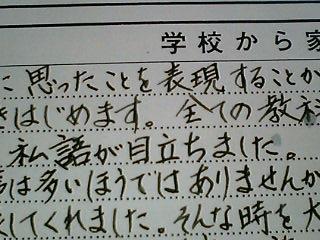 学校から家
に思ったことを表現することが
きはじめます。全ての教科
私語が目立ちました。
は多いほうではありませんか
してくれました。そんな時を大